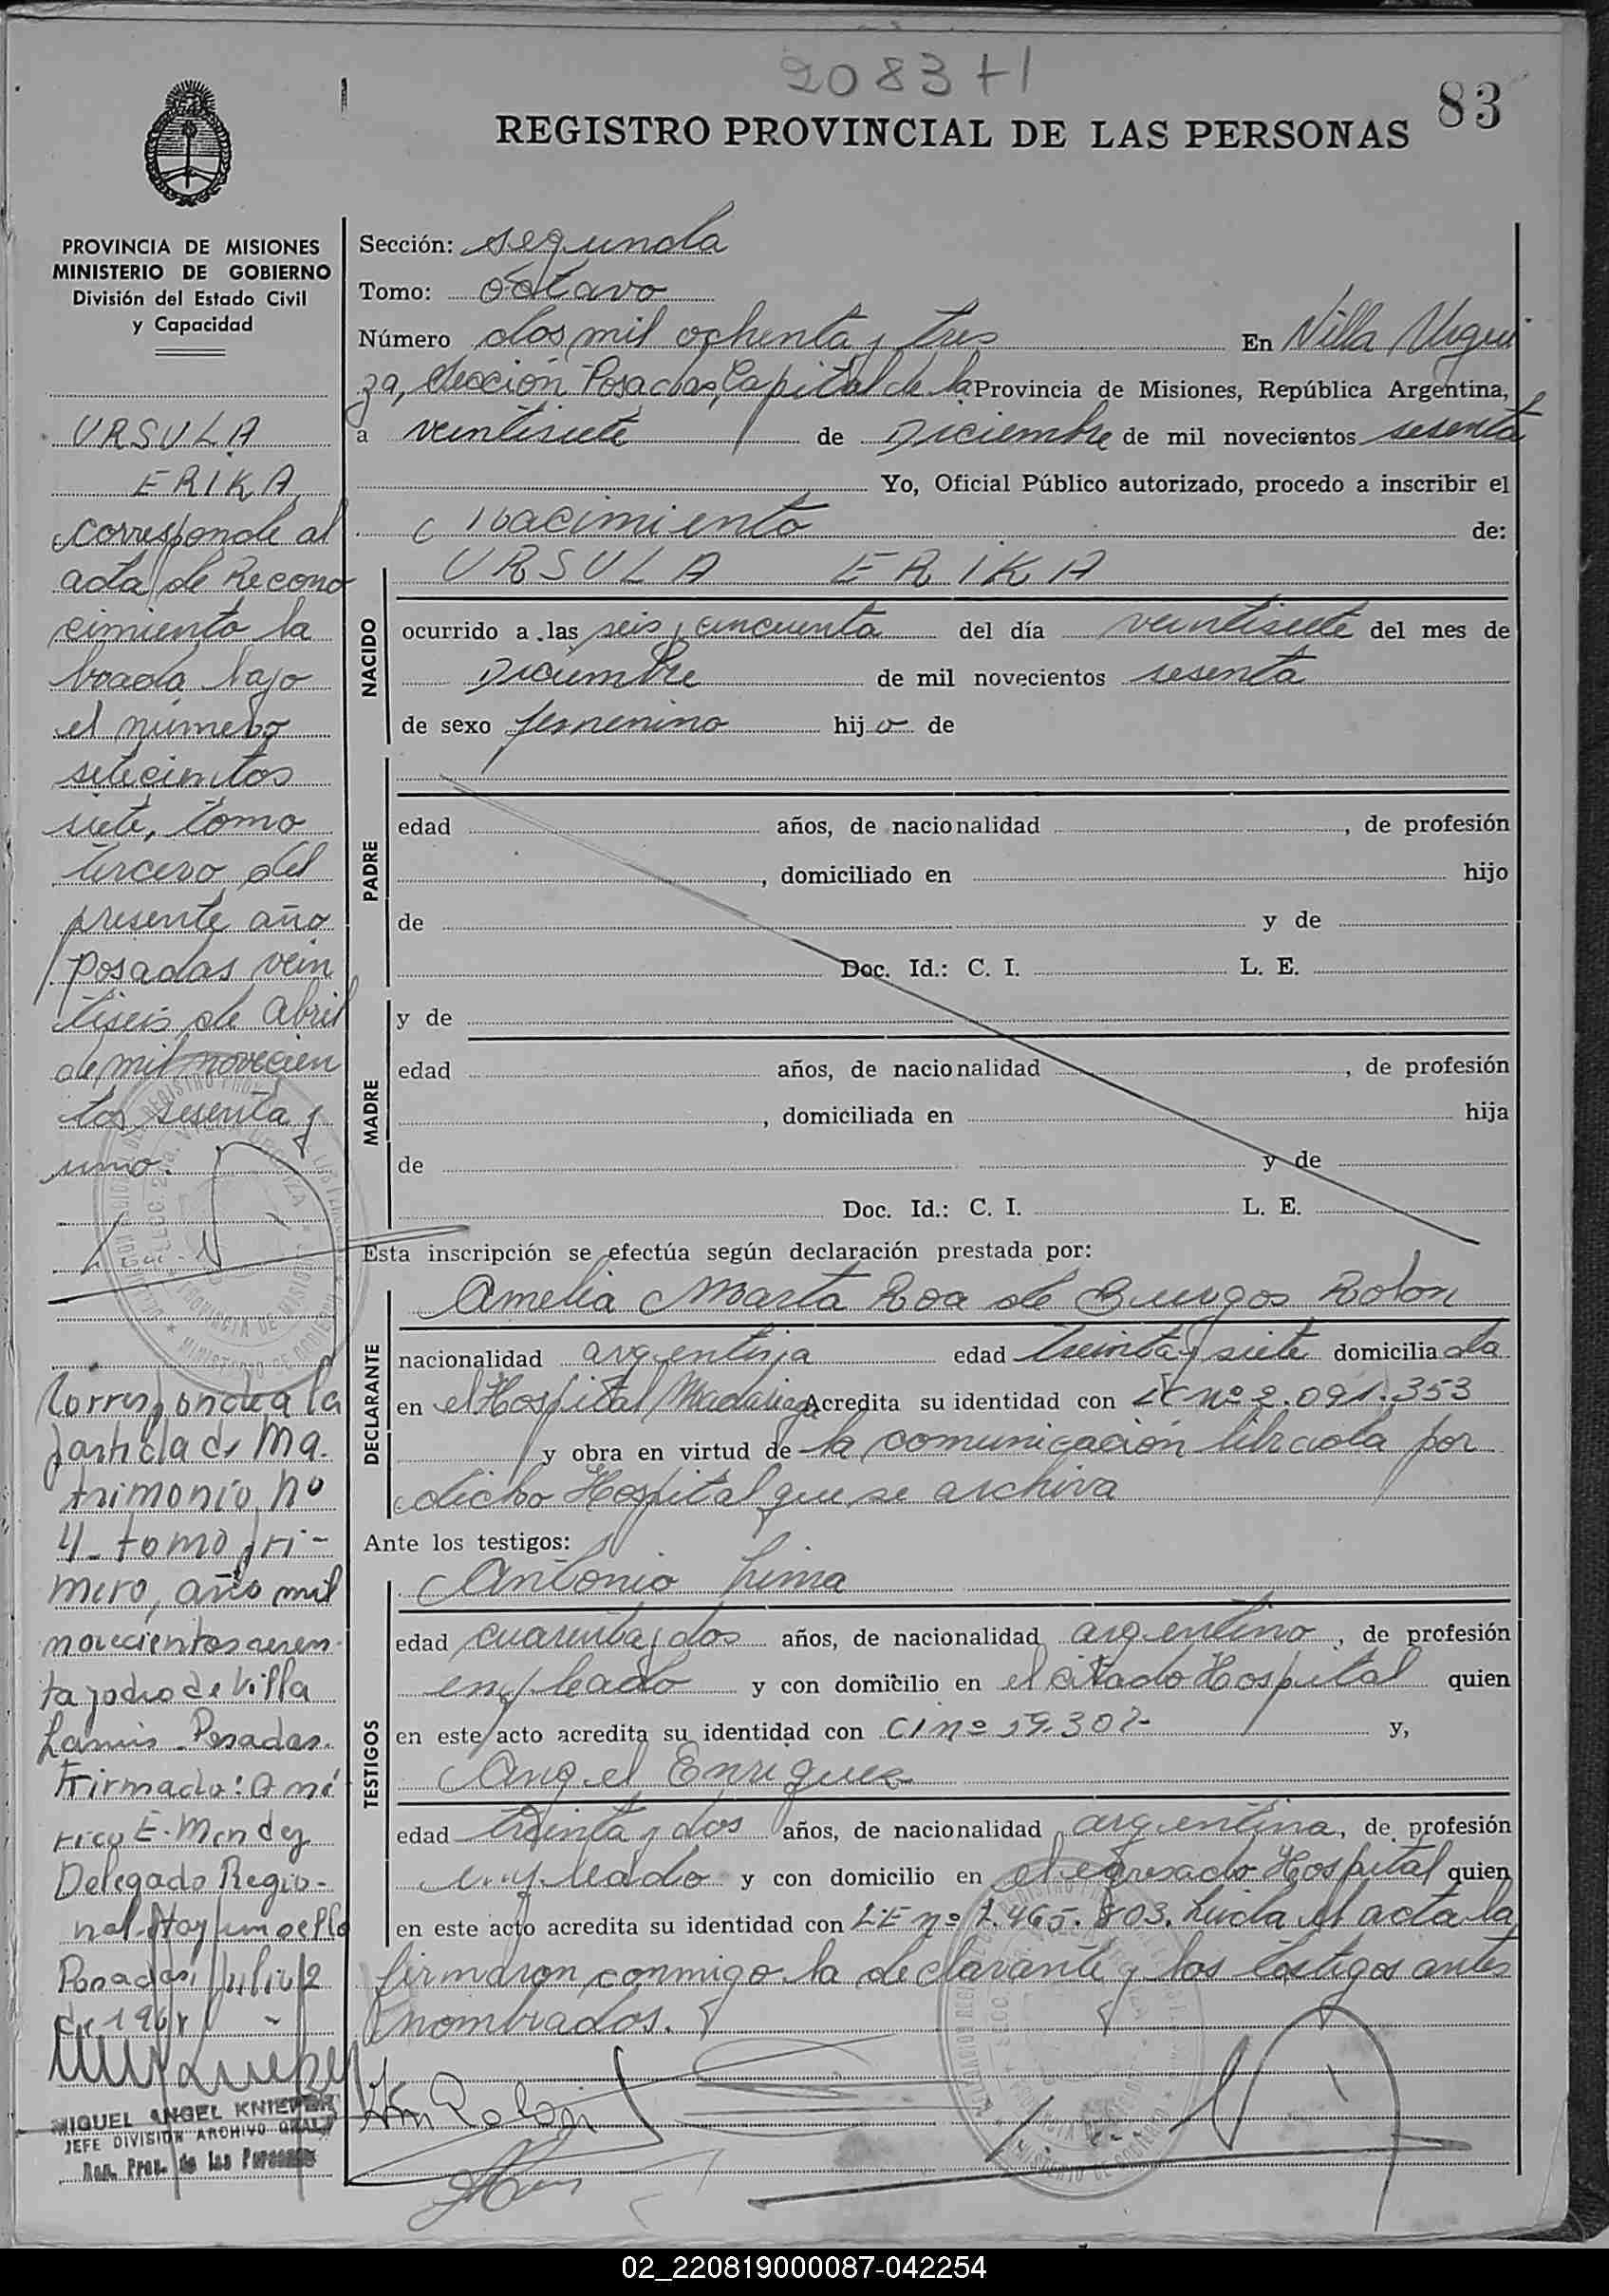 2083 + 1
83
REGISTRO PROVINCIAL DE LAS PERSONAS
PROVINCIA DE MISIONES
MINISTERIO DE GOBIERNO
División del Estado Civil
y Capacidad
URSULA
ERIKA
corresponde al
acta de Recono
cimiento la
brada bajo
el número
setecientos
siete, tomo
tercero del
presente año
Posadas vein
tiseis de Abril
de mil novecien
tos sesenta y
uno.
Corresponde a la
partida de Ma.
trimonio nº
4- tomo pri-
mero, año mil
novecientos
de Villa
Posadas.
Firmado: Amé
rico E. Mendez
Delegado Regio-
nal. Hay un sello
Posadas, Julio 2
de 196
MIGUEL ANGEL KNIEPER
JEFE DIVISION ARCHIVO GRAL.
Reg. Prov. de las Personas
Sección: segunda
Tomo: Octavo
Número dos mil ochenta y tres En Villa Urqui
za, Sección Posadas, Capital de la Provincia de Misiones, República Argentina,
a veintisiete de Diciembre de mil novecientos sesenta
Yo, Oficial Público autorizado, procedo a inscribir el
Nacimiento de:
URSULA ERIKA
NACIDO
ocurrido a las seis y cincuenta del día veintisiete del mes de
Diciembre de mil novecientos sesenta
de sexo femenino hijo de
PADRE
edad años, de nacionalidad , de profesión
, domiciliado en hijo
de y de
Doc. Id.: C. I. L. E.
MADRE
y de
edad años, de nacionalidad , de profesión
, domiciliada en hija
de y de
Doc. Id.: C. I. L. E.
Esta inscripción se efectúa según declaración prestada por:
DECLARANTE
Amelia Marta Roa de Burgos Rolon
nacionalidad argentina edad treinta y siete domiciliada
en el Hospital Madariaga Acredita su identidad con LC nº 2.091.353
y obra en virtud de la comunicación librada por
dicho Hospital que se archiva
Ante los testigos:
TESTIGOS
Antonio Lima
edad cuarenta y dos años, de nacionalidad argentino, de profesión
empleado y con domicilio en el citado Hospital quien
en este acto acredita su identidad con CI nº y,
Angel Enriquez
edad treinta y dos años, de nacionalidad argentina, de profesión
empleado y con domicilio en el expresado Hospital quien
en este acto acredita su identidad con LE nº 7.465.803. Leída el acta la
firmaron conmigo la declarante y los testigos antes
nombrados.
Rolon
02_220819000087-042254